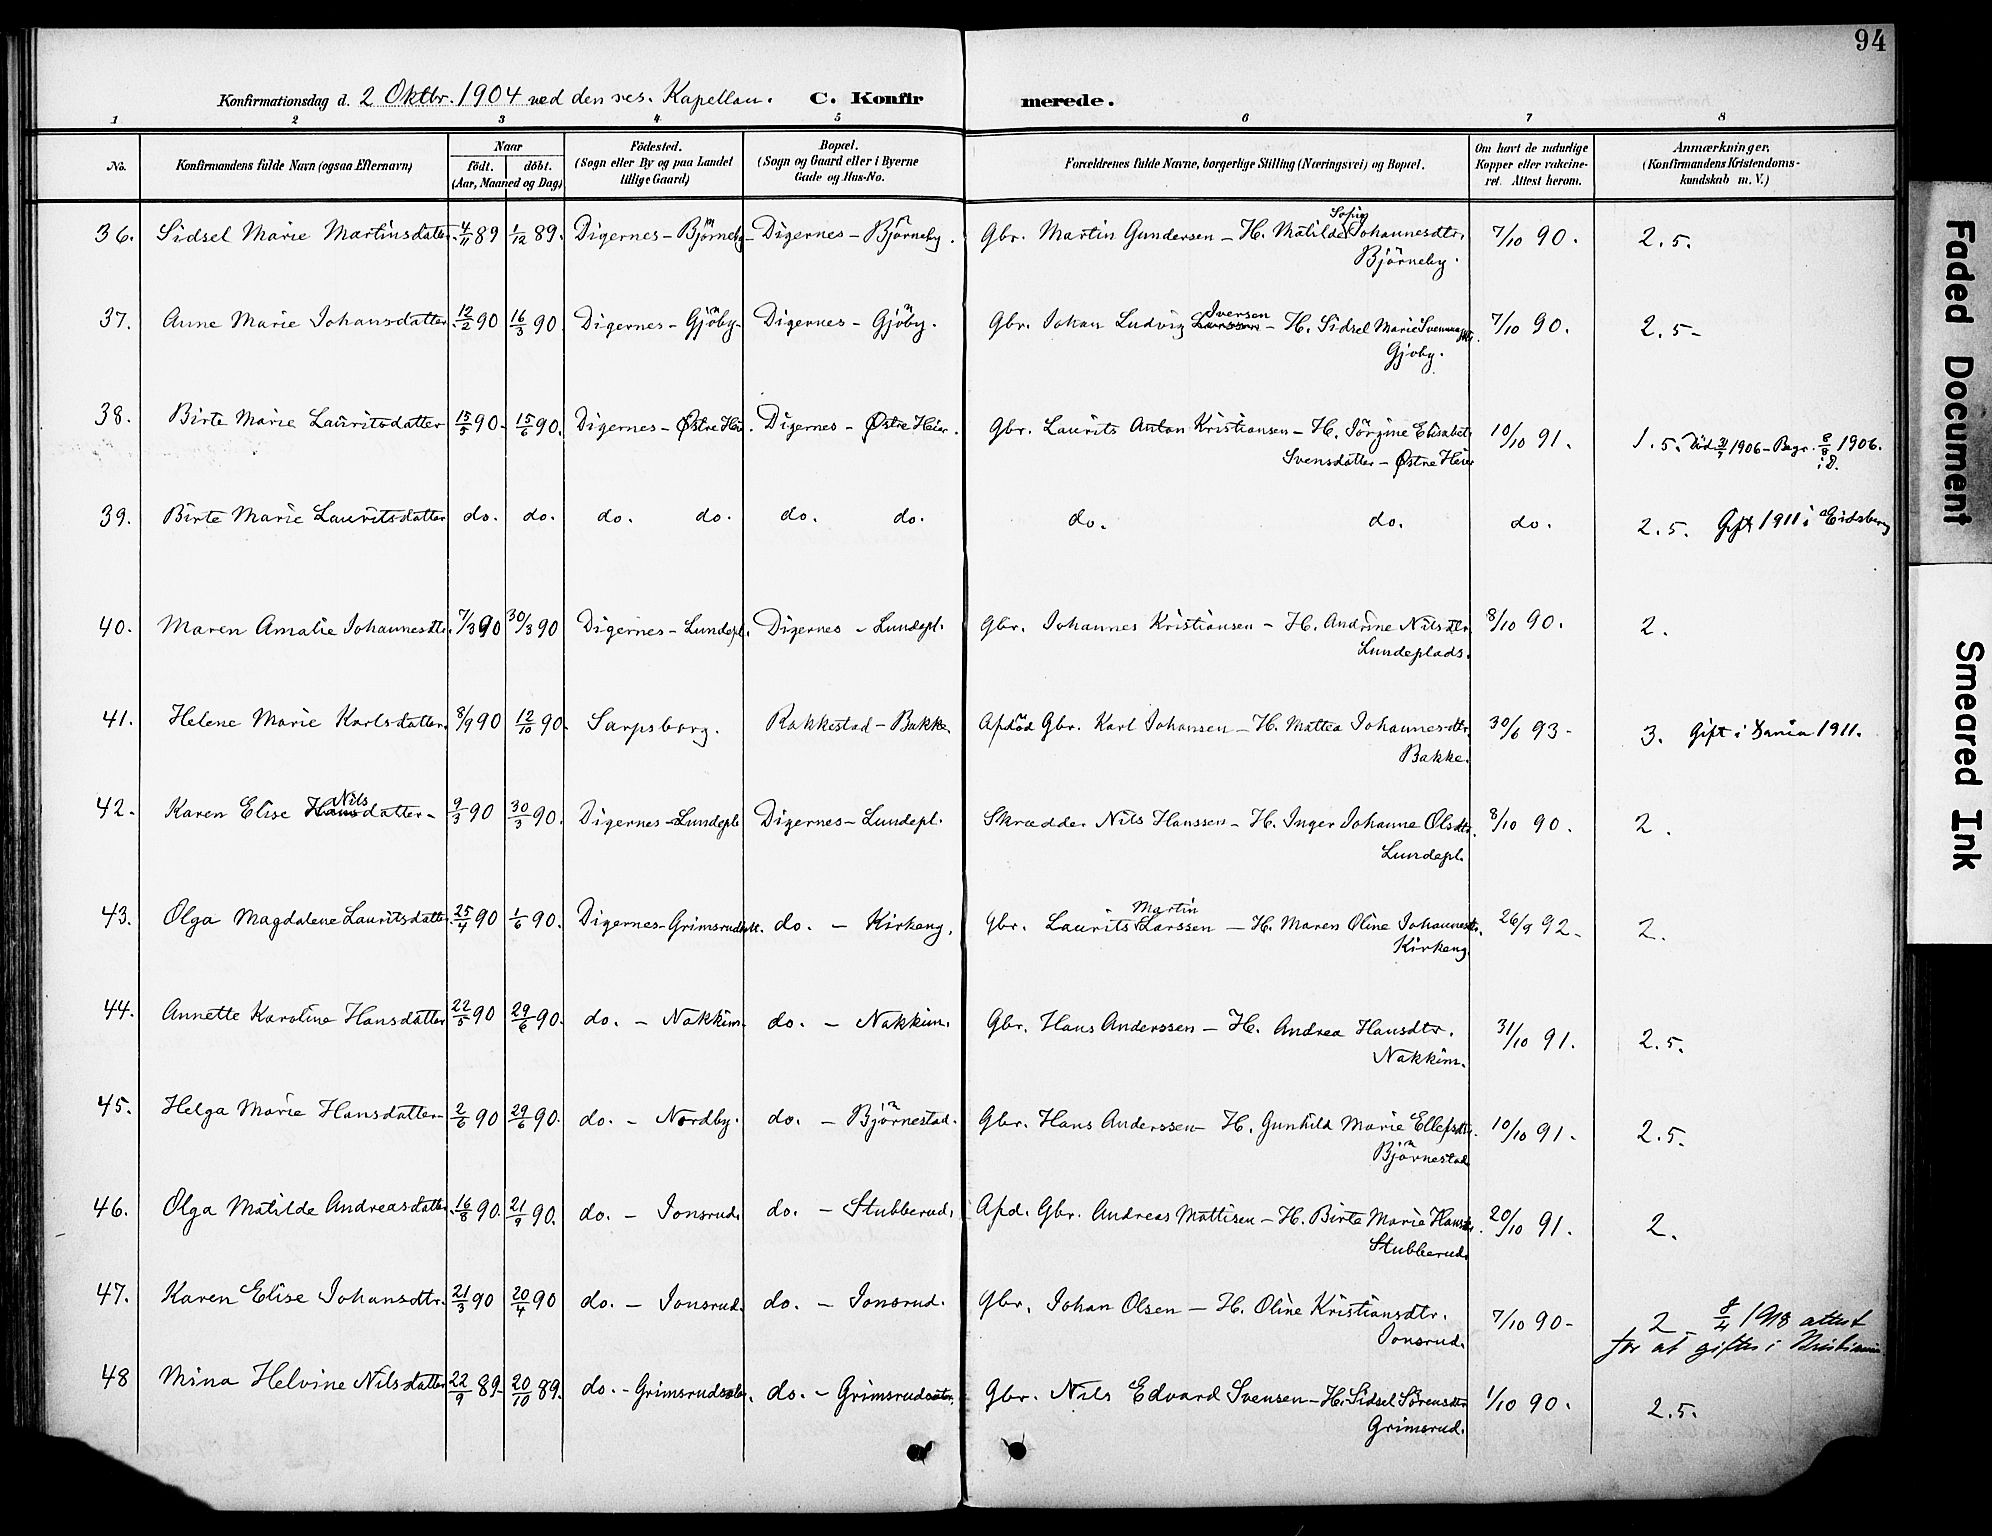 94
Konfirmationsdag d. 2 Oktbr. 1904 ved den res. Kapellan. C. Konfirmerede.
1 2 3 4 5 6 7 8
No. Konfirmandens fulde Navn (ogsaa Efternavn) Naar födt. döbt. (Aar, Maaned og Dag) Födested. (Sogn eller By og paa Landet tillige Gaard) Bopæl. (Sogn og Gaard eller i Byerne Gade og Hus-No. Forældrenes fulde Navne, borgerlige Stilling (Næringsvei) og Bopæl. Om havt de naturlige Kopper eller vakcineret. Attest herom. Anmærkninger, (Konfirmandens Kristendomskundskab m. V.)
36. Sidsel Marie Martinsdatter 4/11 89 1/12 89. Digernes - Björneby Digernes - Björneby. Gbr. Martin Gundersen - H. Matilde Sofie Johannesdtr. 7/10 90. 2.5.
Björneby.
37. Anne Marie Johansdatter 12/2 90 16/3 90. Digernes - Gjöby. Digernes - Gjöby. Gbr. Johan Ludvig Larssen Iversen - H. Sidsel Marie 7/10 90. 2.5-
Gjöby.
38. Birte Marie Lauritsdatter 15/5 90 15/6 90. Digernes - Østre Hei. Digernes - Østre Heier. Gbr. Laurits Anton Kristiansen - H. Jörgine Elisabet 10/10 91. 1.5. Död 31/7 1906 - Begr. 8/8 1906.
Svensdatter - Østre Heier i D.
39. Birte Marie Lauritsdatter do. do. do. do. do. do. do. do. do. 2.5. Gift 1911 i Eidsberg
40. Maren Amalie Johannesdtr. 7/3 90 30/3 90 Digernes - Lundepl. Digernes - Lundepl. Gbr. Johannes Kristiansen - H. Andrine Nilsdtr. 8/10 90. 2.
Lundeplads.
41. Helene Marie Karlsdatter. 8/9 90 12/10 90. Sarpsborg. Rakkestad - Bakke. Afdöd Gbr. Karl Johansen - H. Mattea Johannesdtr. 30/6 93- 3. Gift i 1911.
Bakke.
42. Karen Elise Hans Nilsdatter - 9/3 90 30/3 90. Digernes - Lundepl. Digernes - Lundepl. Skrædder Nils Hanssen - H. Inger Johanne Olsdtr. 8/10 90. 2.
Lundepl.
43. Olga Magdalene Lauritsdatter 25/4 90 1/6 90. Digernes - do. - Kirkeng. Gbr. Laurits Martin Larssen - H. Maren Oline Johannesdtr. 26/9 92- 2.
Kirkeng.
44. Annette Karoline Hansdatter 22/5 90 29/6 90. do. - Nakkim. do. - Nakkim. Gbr. Hans Anderssen - H. Andrea Hansdtr. 31/10 91. 2.5.
Nakkim.
45. Helga Marie Hansdatter 2/6 90 29/6 90. do. - Nordby. do. - Björnestad. Gbr. Hans Anderssen - H. Gunhild Marie Ellefsdtr. 10/10 91. 2.5.
Björnestad
46. Olga Matilde Andreasdatter 16/8 90. 21/9 90. do. - Jonsrud. do. - Stubberud. Afd. Gbr. Andreas Mattisen - H. Birte Marie Hansdtr. 20/10 91. 2.
Stubberud.
47. Karen Elise Johansdtr. 21/3 90 20/4 90 do. - Jonsrud. do. - Jonsrud. Gbr. Johan Olsen - H. Oline Kristiansdtr. 7/10 90- 2 - 8/4 1918 attest
Jonsrud. for at giftes i Kristiania
48 Mina Helvine Nilsdatter 22/9 89 20/10 89. do. - do. - Gbr. Nils Edvard Svensen - H. Sidsel Sörensdtr. 1/10 90. 2.5.
Grimsrud.
Faded Document
Smeared Ink